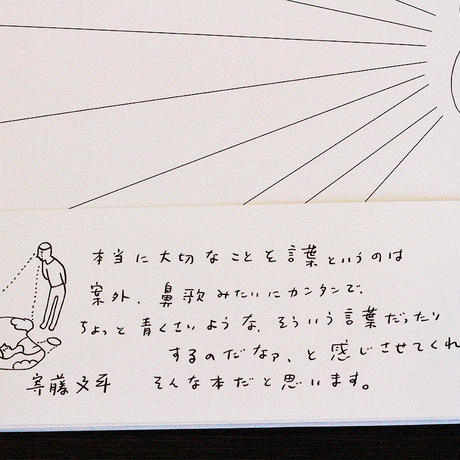 本当に大切なことを言葉というのは
案外、鼻歌みたいにカンタンで、
ちょっと青くさいような、そういう言葉だったり
するのだなァ、と感じさせてくれ
そんな本だと思います。
寄藤文平